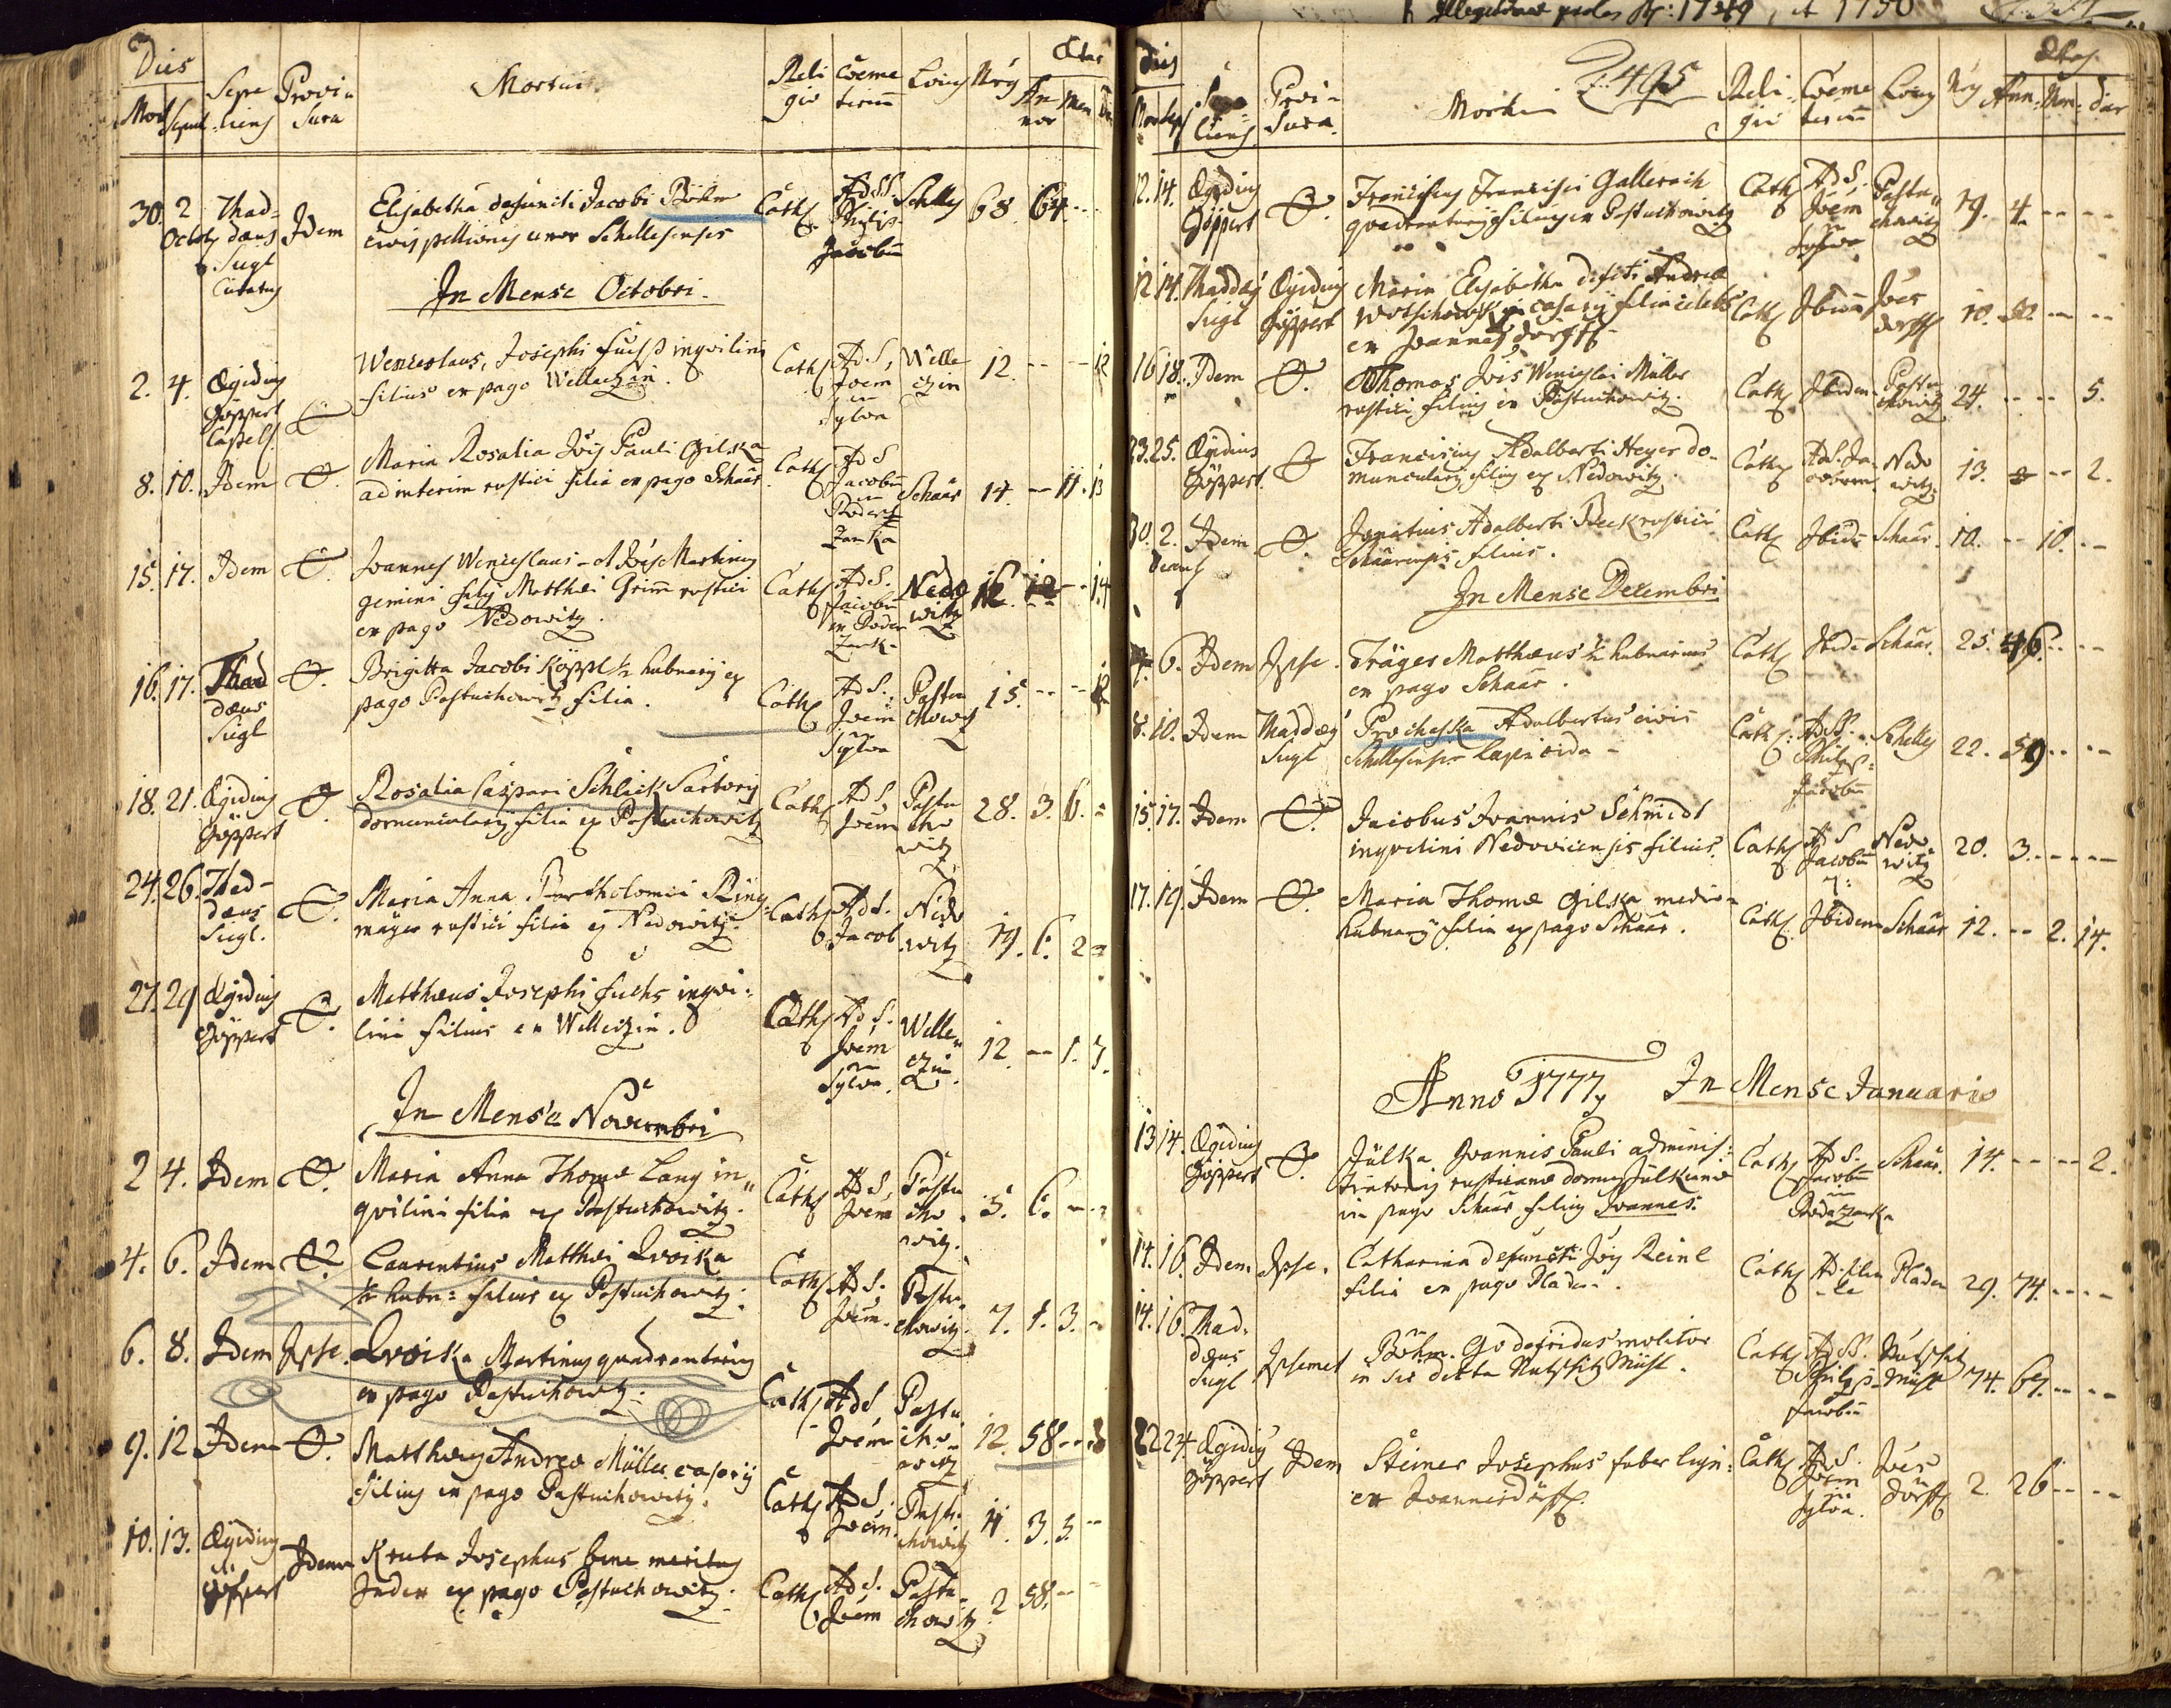 Dies
Mort Sepul
Sepe
liens
Provi
sura
Mortui
Reli
gio
Cœme
terium
Locus
Nrg
Ætas
An
nor
Men
30. 2 Octob Thad
dæus
Sicgl
Curatus
Idem
Elisabetha defuncti Jacobi Böhm
civis pellionis uxor Schellesensis
Cath Ad SS.
Philip.
Jacobum
Schelles 68 64
In Mense Octobri.
2. 4. Ægidius
Göppert
Capell.
Wenceslaus, Josephi Fuchs inqvilini
filius ex pago Willeczin.
Cath Ad S.
Joem
in
Sylva
Wille
czin
12. 12
8. 10. Idem
Maria Rosalia Jois Pauli Gilska
ad interim rustici filia ex pago Schaar.
Cath Ad S
Jacobum
in
Poders
zanka
Schaar 14. 11. 13
15. 17. Idem
Joannes Wenceslaus et Jois Martinus
gemini filij Matthæi Grim rustici
ex pago Nedowitz.
Cath Ad S.
Jacobum
in Poder
zank.
Nedo
witz
14
16. 17. Thad
dæus
Sicgl
Brigitta Jacobi Köppl ½ hubnarij ex
pago Pastuchowitz filia.
Cath Ad S.
Joem
in
Sylva
Pastu
chowitz
15. 12
18. 21. Ægidius
Göppert
Rosalia Caspari Schlick Sartoris
domuncularij filia ex Pastuchowitz
Cath Ad S,
Joem
Pastu
cho
witz
28. 3. 6.
24. 26. Thad-
dæus
Sicgl.
Maria Anna Bartholomæi Ring
mayer rustici filia ex Nedowitz.
Cath Ad S.
Jacob
Nedo
witz
19. 6. 2
27. 29 Ægidius
Göppert
Matthæus Josephi Fuchs inqvi:
lini filius ex Willeczin.
Cath Ad S.
Joem
in
Sylva.
Wille
czin
12 1. 3.
In Mense Novembri
2 4. Idem
Maria Anna Thomæ Lang in„
qvilini filia ex Pastuchowitz.
Cath Ad S,
Joem
Pastu
cho
witz.
5. 6.
4. 6. Idem
Laurentius Matthæi Qvoika
½ hubn: filius ex Pastuchowitz.
Cath Ad S.
Joem.
Pastu
chowitz.
7. 1. 3.
6. 8. Idem Ipse.
Qvoika Martinus quadrantarius
ex pago Pastuchowitz.
Cath Ad S
Joem
Pastu
cho
witz
12. 58
9. 12 Idem
Matthæus Andreæ Müller casarij
filius ex pago Pastuchowitz.
Cath Ad S.
Joem.
Pastu
chowitz
11. 3. 3.
10. 13. Ægidius
Göppert
Idem
Kruta Josephus bene meritus
Judex ex pago Pastuchowitz.
Cath Ad S.
Joem
Pastu
chowitz
2 58.
Illegitimæ proles 1749, et 1750
Dies
Mor Sep
liens
Provi-
sura.
Mortui
495
Reli
gio
Cœme
terium
Locus
Nrg
Ætas
Ann. Men. dier
12. 14. Ægidius
Göppert
Franciscus Francisci Gallerach
quadrantarij filius ex Pastuchowitz
Cath Ad S.
Joem
in
Sylva
Pastu„
chowitz
19. 4
12 14. Thaddæus
Sicgl
Ægidius
Göppert
Maria Elisabetha defcti Andreæ
casarij filia cælebs
ex Joannesdorff
Cath Ibidem Joes
dorff
10. 30.
16 18. Idem
Thomas Jois Wenceslai Müller
rustici filius ex Pastuchowitz.
Cath Ibidem Pastu
chowitz
24. 5.
23. 25. Ægidius
Göppert.
Franciscus Adalberti Heger do-
muncularij filius ex Nedowitz.
Cath Ad S. Ja
cobum.
Nedo
witz.
13. 2.
30. 2. Idem
Ignatius Adalberti Beck rustici
Schaarensis filius.
Cath Ibid. Schaar. 10. 10.
In Mense Decembri
6. Idem Ipse.
Träger Matthæus ½ hubnarius
ex pago Schaar.
Cath Ibid. Schaar. 25. 46.
8. 10. Idem Thaddæus
Sicgl
Procheska Adalbertus civis
Schellesensis Lapicida
Cath: Ad SS.
Philip:
Jacobum
Schelles 22. 59
15. 17. Idem
Jacobus Joannis Schmidt
inqvilini Nedovicensis filius.
Cath Ad S
Jacobum
Nedo
witz
20. 3.
17. 19. Idem
Maria Thomæ Gilska medio-
hubnarij filia ex pago Schaar.
Cath. Ibidem Schaar 12. 2. 14.
Anno 1777 In Mense Januario
13 14. Ægidius
Göppert
Jülka Joannis Pauli adminis:
tratoris rusticanæ domus Jülkianæ
in pago Schaar filius Joannes.
Cath Ad S.
Jacobum
in
Poderzanka
Schaar. 14. 2.
14. 16. Idem Ipse.
Catharina defuncti Jois Reinl
filia ex pago Pladen.
Cath Pladen 29. 74.
14. 16. Thad
dæus
Sicgl
Ipsemet
Böhm. Godefridus molitor
in sic dicta Mühl.
Cath Ad SS.
Philip
Jacobum
Mühl 74. 67.
22 24. Ægidius
Göppert
Idem
Steiner Josephus faber lign:
ex Joannesdorff.
Cath Ad S.
Joem
in
Sylva.
Joes
dorff
2. 26